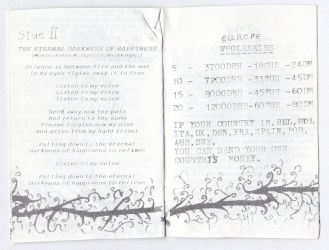 Side II
THE ETERNAL DARKNESS OF HAPPINESS
Silence is between fire and the sun
In my eyes flying away it to tree
Listen to my voice
Listen to my voice
Listen to my voice
Send away now the pain
And return to the sand
Please forgive now my sins
And arise from my hand
Falling down to the eternal
Darkness of happiness to relieve
Listen to my voice
Falling down to the eternal
Darkness of happiness to relieve
EUROPE
WHOLESALES
5 - 3700DRH -18$US -24DM
10 - 7200DRH -33$US -45DM
15 - 9000DRH -45$US -60DM
20 - 12000DRH-60$US -90DM
IF YOUR COUNTRY IS, BEL, HOL
ITA, UK, DEN, FRA, SPAIN, POR,
AUS, SWE,
YOU CAN SEND YOUR OWN
COUNTRYS MONEY.